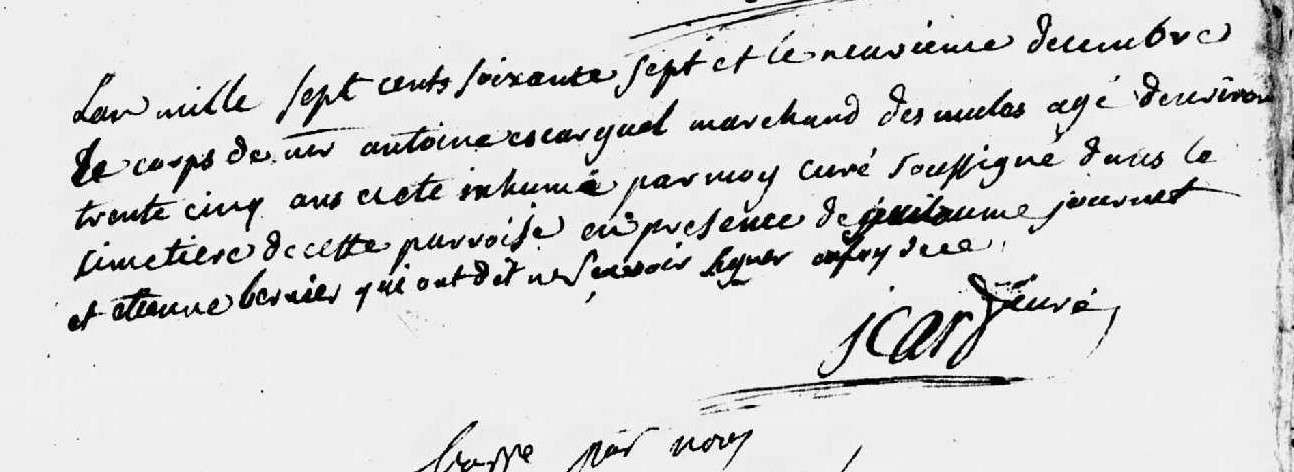 Lan mille sept cents soixante sept et le neuvieme decembre
le corps de mr antoine escarguel marchand des mulos agé denviron
trente cinq ans a eté inhumé par moy curé soussigné dans le
simetiere de cette parroise en presence de guilaume journet
et etienne bernier qui ont dit ne scavoir signer enfoy de ce
icard curé
par nous